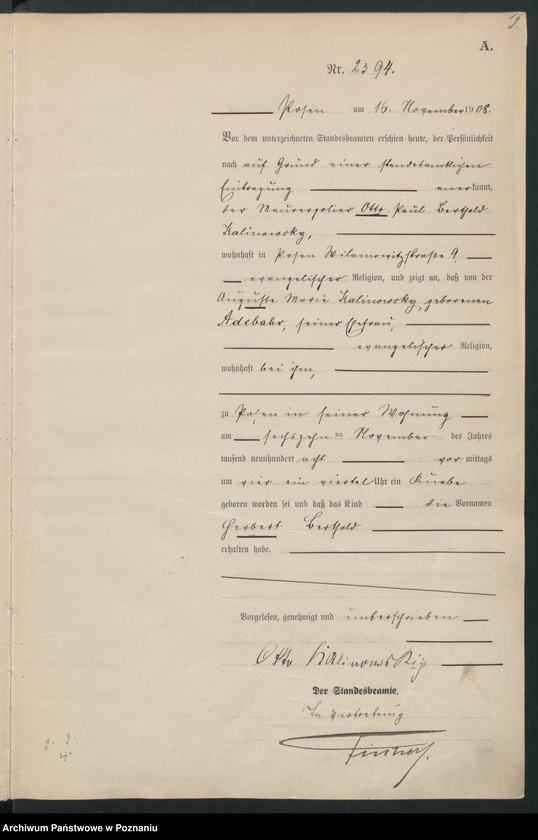 A.
Nr. 2394.
Posen am 16. November 1908.
Vor dem unterzeichneten Standesbeamten erschien heute, der Persönlichkeit
nach auf Grund einer standesamtlichen
Eintragung anerkannt,
der Maurerpolier Otto Paul Berthold
Kalinowsky,
wohnhaft in Posen Wilamowitzstraße 9,
evangelischer Religion, und zeigt an, daß von der
Auguste Marie Kalinowsky geborenen
Adebahr, seiner Ehefrau,
evangelischer Religion,
wohnhaft bei ihm,
zu Posen in seiner Wohnung
am sechszehn ten November des Jahres
tausend neunhundert acht vor mittags
um vier ein viertel Uhr ein Knabe
geboren worden sei und daß das Kind die Vornamen
Herbert Berthold
erhalten habe.
Vorgelesen, genehmigt und unterschrieben
Otto Kalinowsky
Der Standesbeamte.
In Vertretung
Archiwum Państwowe w Poznaniu